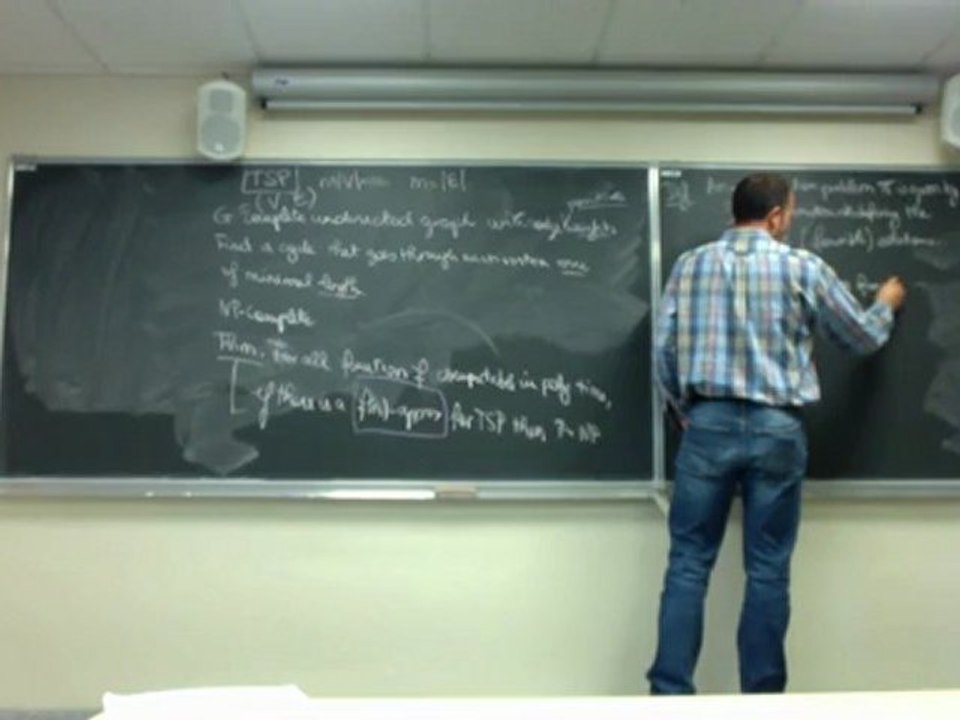 TSP n=|V| m=|E|
(V, E)
G Complete undirected graph with edge weights
Find a cycle that goes through each vertex once
of minimal length
NP-Complete
Thm. For all function f computable in poly time,
if there is a f(n)-approx for TSP then P=NP
Def An problem π is given by
the
(feasible) solutions